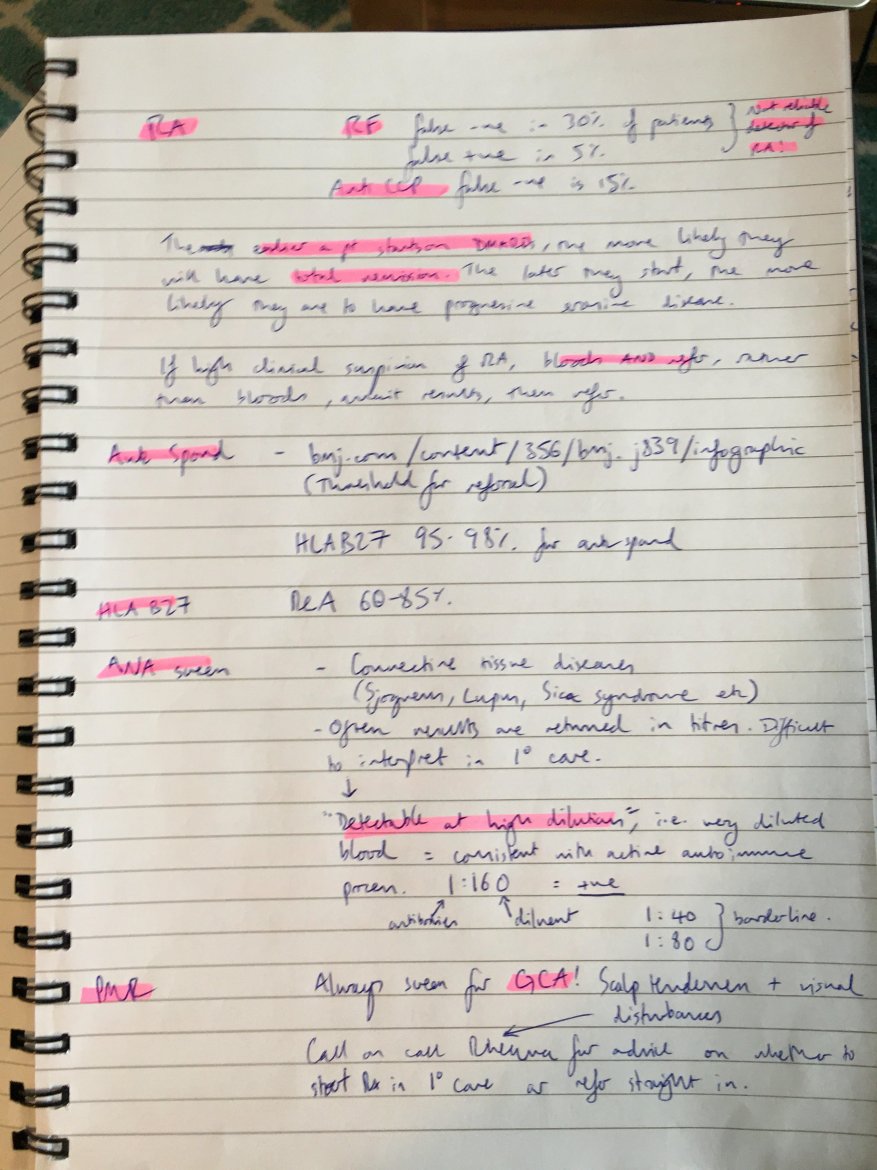 RA RF false -ve in 30% of patients } Not reliable
false +ve in 5% detector of
RA!
Anti CCP false -ve is 15%
The earlier a pt starts on DMARDs, the more likely they
will have total remission. The later they start, the more
likely they are to have progressive erosive disease.
If high clinical suspicion of RA, bloods AND refer, rather
than bloods, await results, then refer.
Ank Spond - bmj.com/content/356/bmj.j839/infographic
(Threshold for referral)
HLAB27 95-98% for ank spond
HLA B27 ReA 60-85%.
ANA screen - Connective tissue diseases
(Sjogrens, Lupus, Sicca syndrome etc)
- Often results are returned in titres. Difficult
to interpret in 1° care.
↓
"Detectable at high dilution", i.e. very diluted
blood = consistent with active autoimmune
process. 1:160 = +ve
antibodies diluent 1:40 } borderline.
1:80
PMR Always screen for GCA! Scalp tenderness + visual
disturbances
Call on call Rheuma for advice on whether to
start Rx in 1° care or refer straight in.